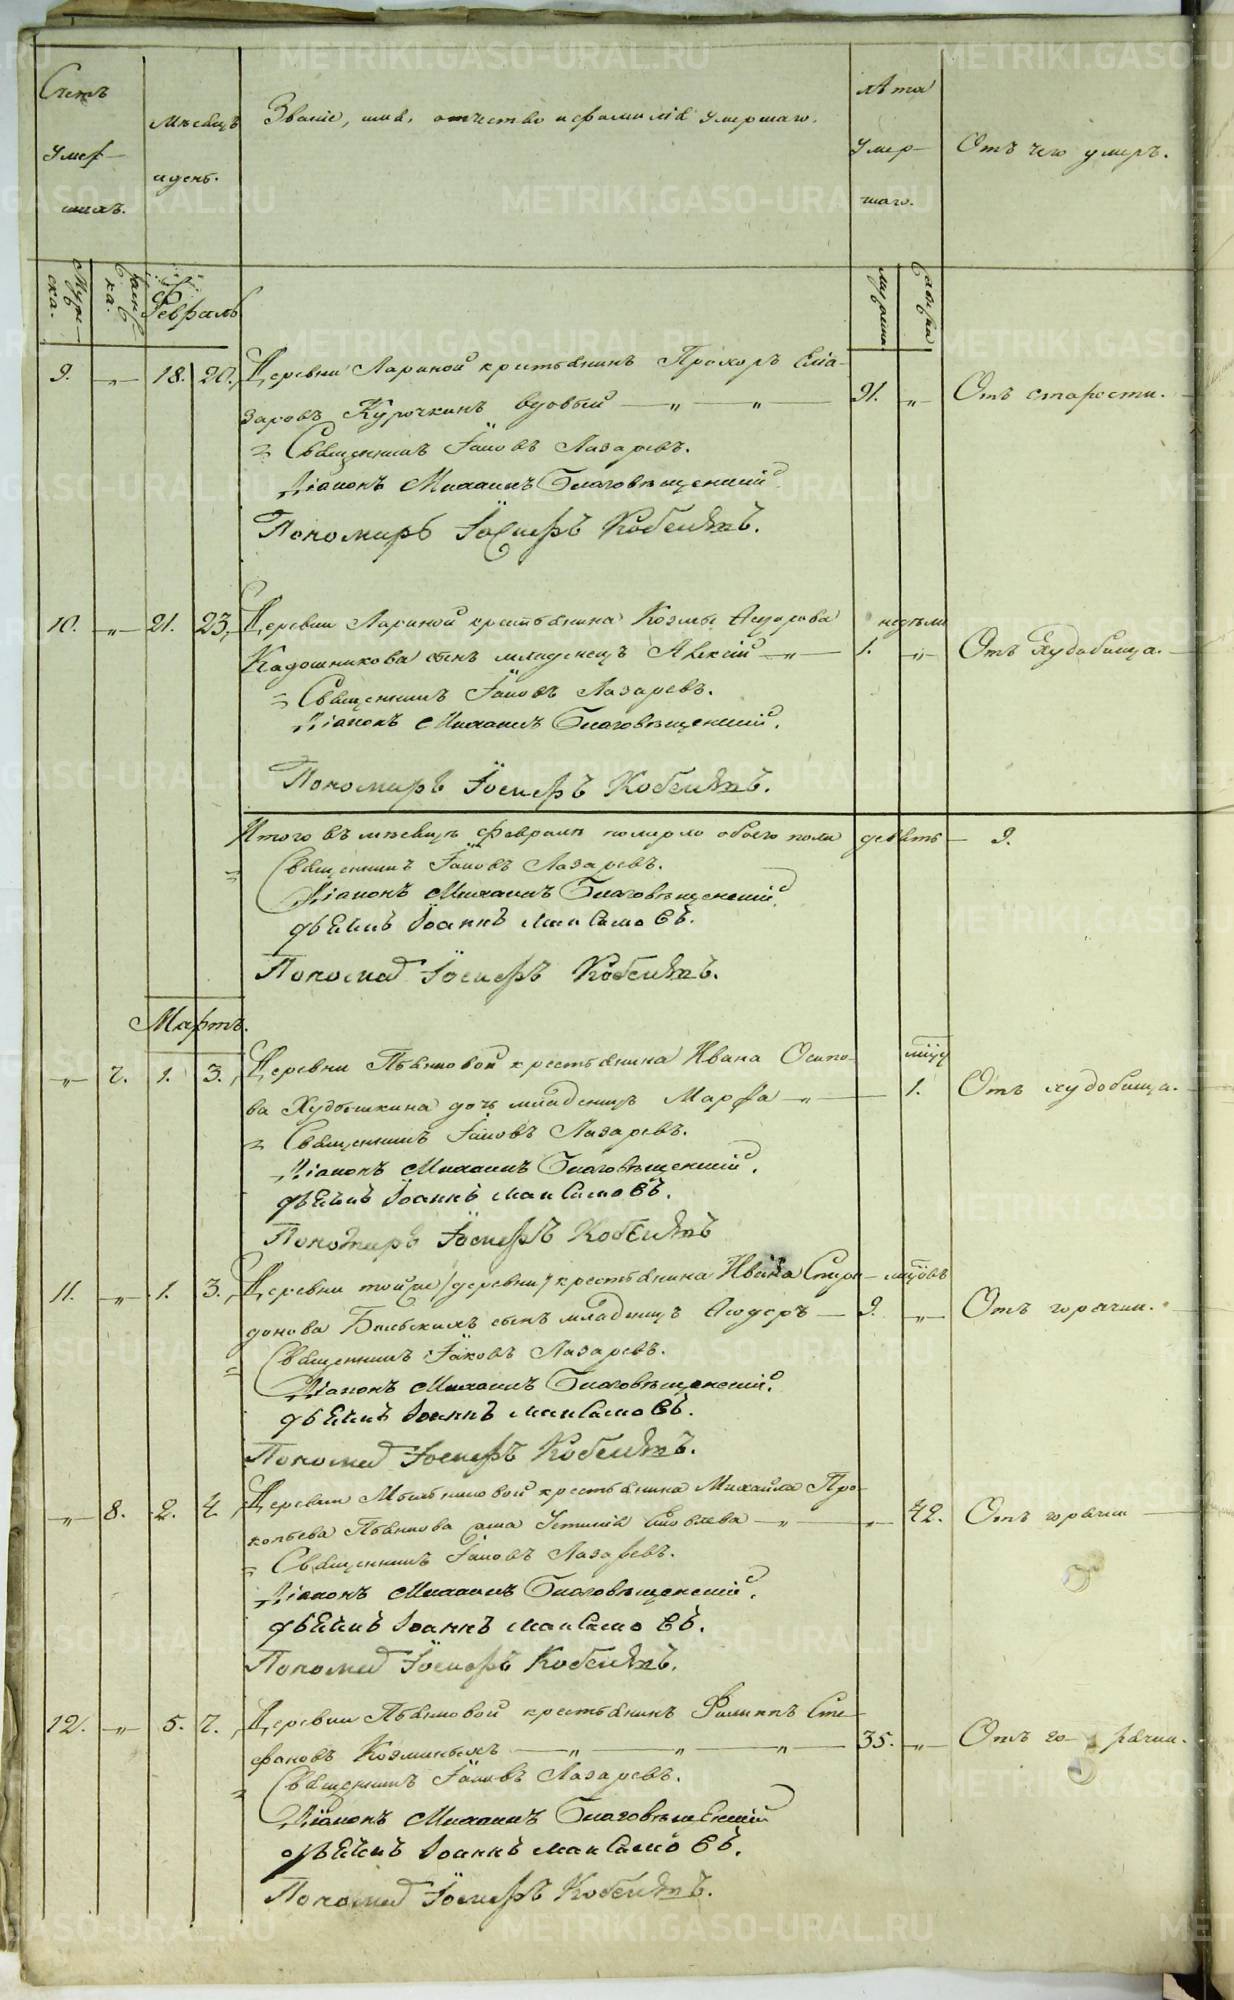 Счетъ умер-шихъ.
Мѣсяцъ и день.
Званіе, имя, отчество и фамилія умершаго.
Лѣта умер-шаго.
Отъ чего умеръ.
Муже-ска.
Женс-ка.
Февраль
мужеска
женска
9. „ 18. 20. Деревни Лариной крестьянинъ Прохоръ Елиа- 91. „ Отъ старости.
заровъ Курочкинъ вдовый „ „
Священникъ Іаковъ Лазаревъ.
Діаконъ Михаилъ Благовѣщенскій
Пономарь Іосифъ Кобелевъ.
10. „ 21. 23. Деревни Лариной крестьянина Козмы Ѳедорова недѣли
Кадошникова сынъ младенецъ Алексій „ 1. „ Отъ худобища.
Священникъ Іаковъ Лазаревъ.
Діаконъ Михаилъ Благовѣщенскій.
Пономарь Іосифъ Кобелевъ.
Итого въ мѣсяцѣ Февралѣ померло обоего пола девять 9.
Священникъ Іаковъ Лазаревъ.
Діаконъ Михаилъ Благовѣщенскій.
дьячекъ Іоаннъ Максимовъ.
Пономарь Іосифъ Кобелевъ.
Мартъ.
„ 7. 1. 3. Деревни Пьянковой крестьянина Ивана Осипо- мцу
ва Худышкина дочь младенецъ Марфа „ 1. Отъ худобища.
Священникъ Іаковъ Лазаревъ.
Діаконъ Михаилъ Благовѣщенскій.
дьячекъ Іоаннъ Максимовъ.
Пономарь Іосифъ Кобелевъ
11. „ 1. 3. Деревни той же (деревни) крестьянина Ивана Спири- мцовъ
донова Бельскихъ сынъ младенецъ Ѳеодоръ 9. „ Отъ горячки.
Священникъ Іаковъ Лазаревъ.
Діаконъ Михаилъ Благовѣщенскій.
дьячекъ Іоаннъ Максимовъ.
Пономарь Іосифъ Кобелевъ.
„ 8. 2. 4. Деревни Мельниковой крестьянина Михайла Про-
копьева Пьянкова жена Устинія Яковлева „ „ 42. Отъ горячки
Священникъ Іаковъ Лазаревъ.
Діаконъ Михаилъ Благовѣщенскій.
дьячекъ Іоаннъ Максимовъ.
Пономарь Іосифъ Кобелевъ.
12. „ 5. 7. Деревни Пьянковой крестьянинъ Филиппъ Сте-
фановъ Козминыхъ „ „ „ 35. „ Отъ го-рячки.
Священникъ Іаковъ Лазаревъ.
Діаконъ Михаилъ Благовѣщенскій
дьячекъ Іоаннъ Максимовъ.
Пономарь Іосифъ Кобелевъ.
METRIKI.GASO-URAL.RU